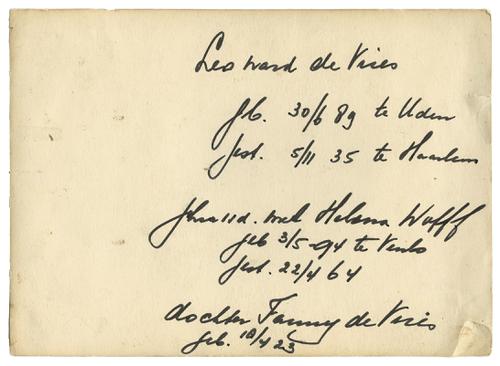 Leonard de Vries
geb. 30/6 89 te Uden
gest. 5/11 35 te Haarlem
gehuwd. met Helena Wolff
geb 3/5-94 te Venlo
gest. 22/4 64
dochter Fanny de Vries
geb. 18/4 23